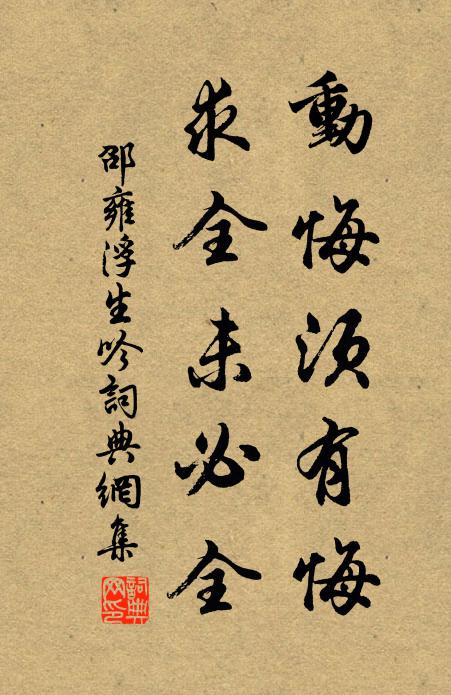 動悔須有悔
求全未必全
邵雍浮生吟詞典網集
詞典网印